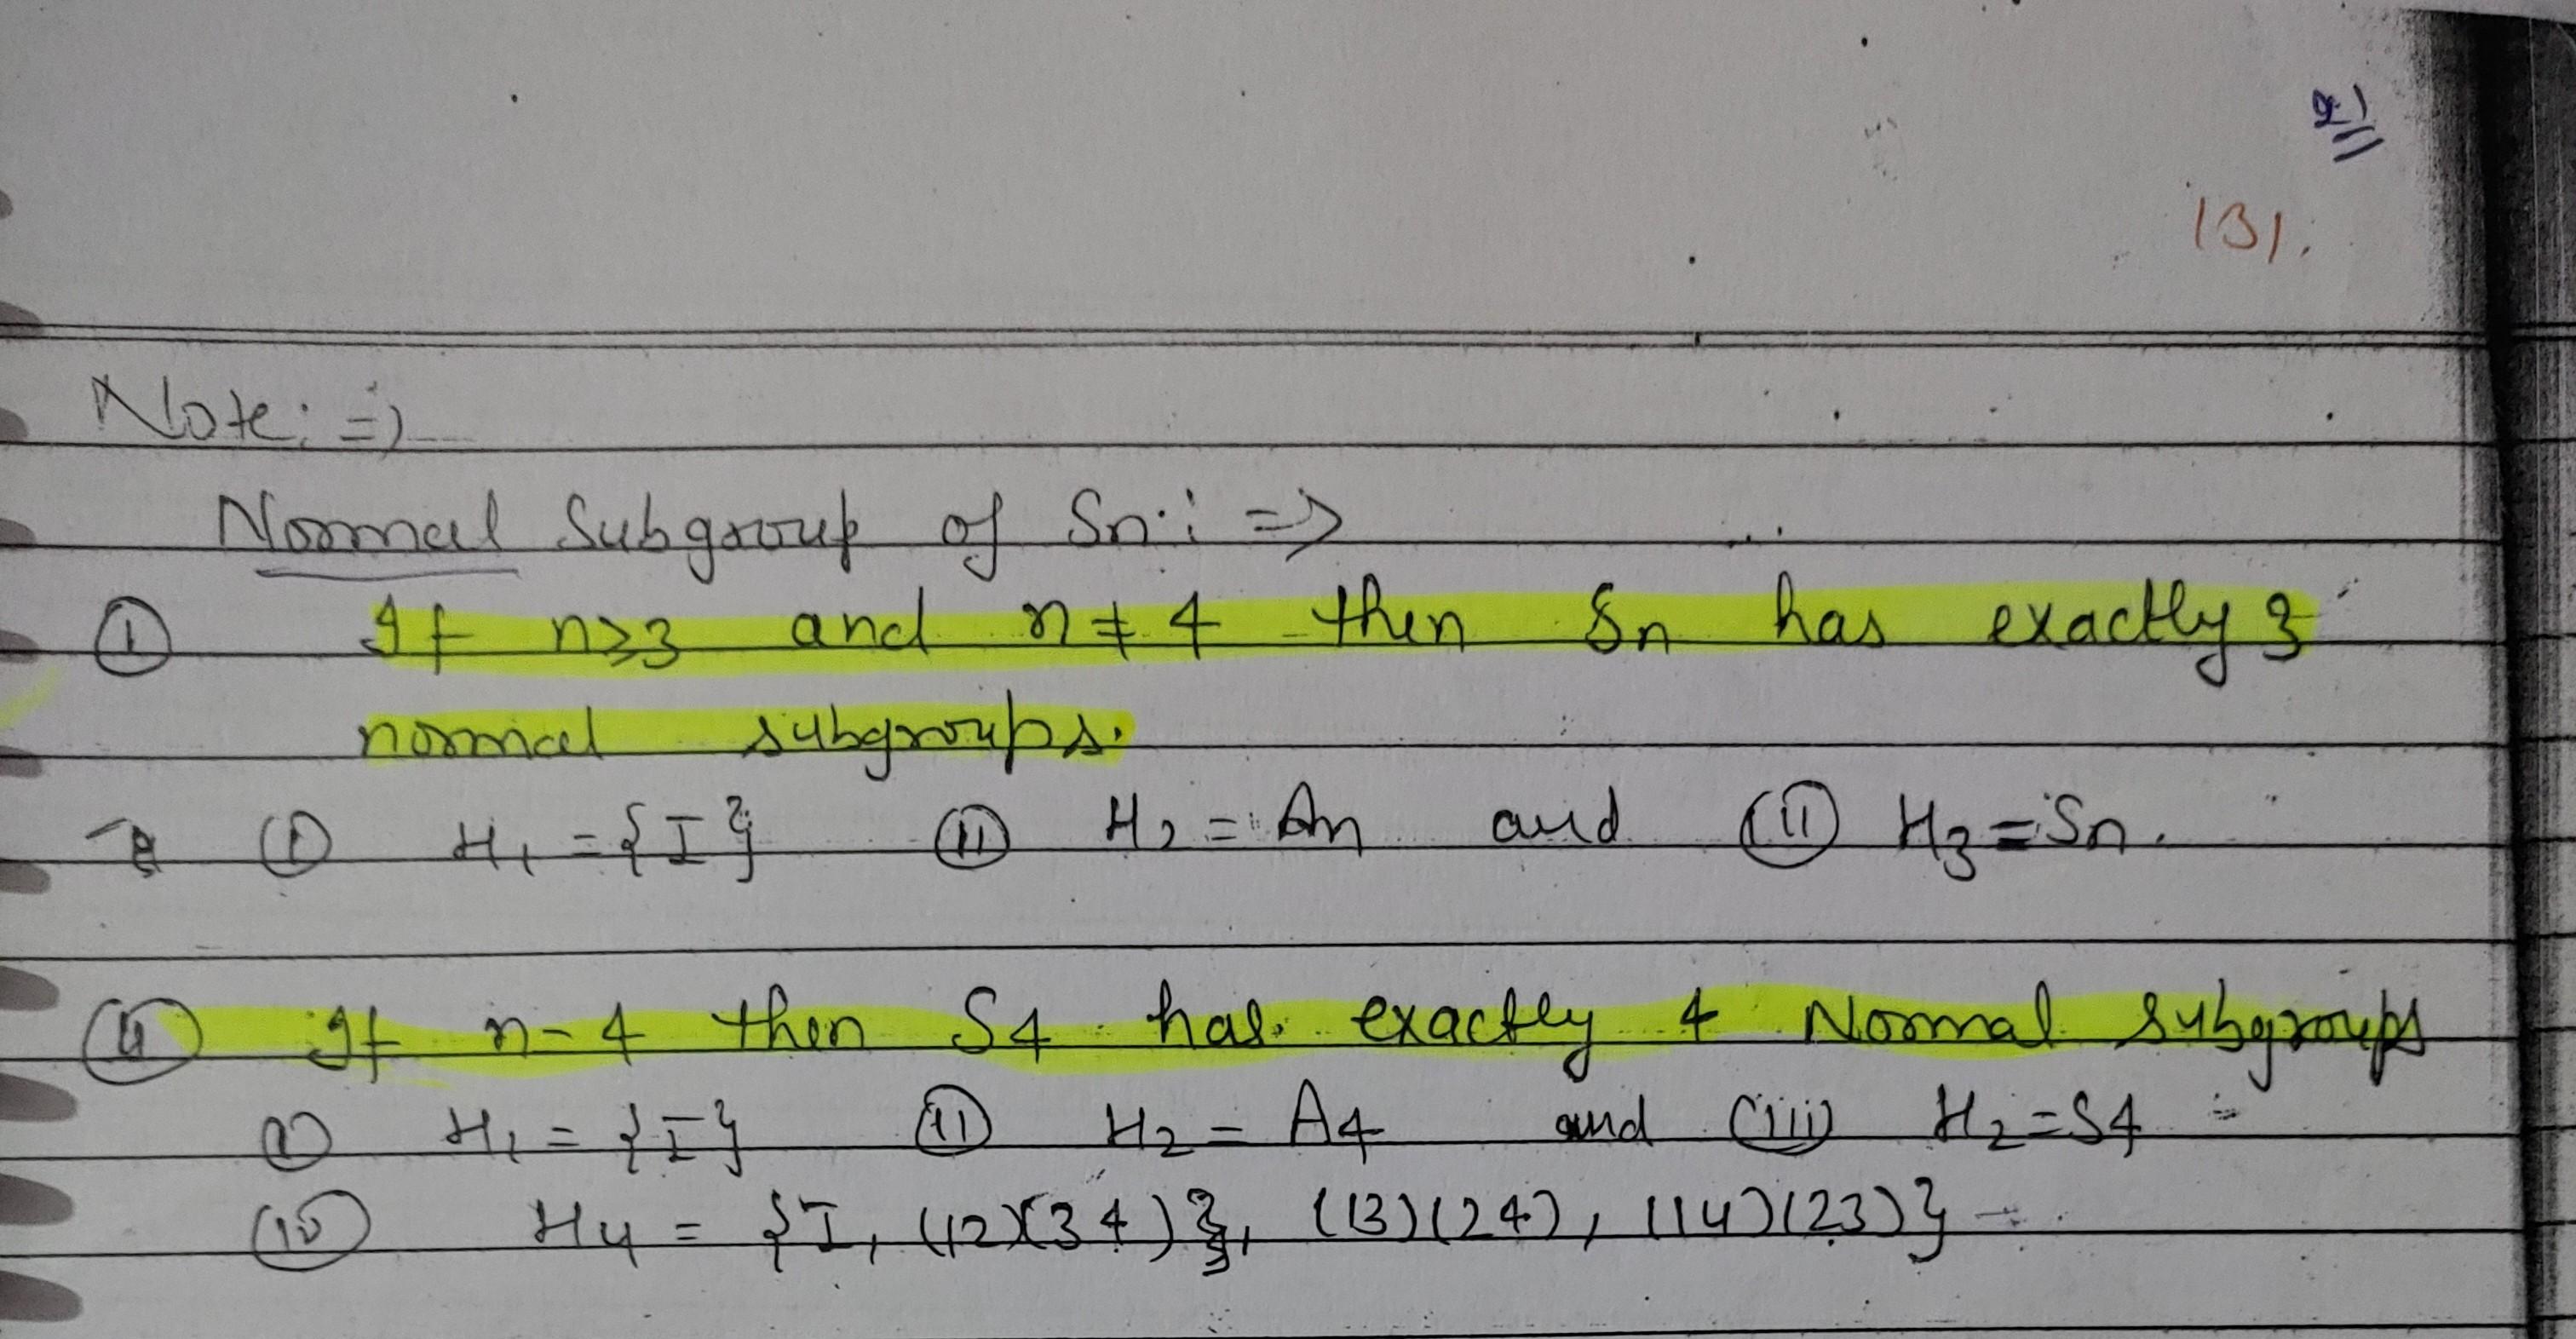 131.
Note: =>
Normal Subgroup of Sn : =>
(1) If n≥3 and n ≠ 4 then Sn has exactly 3
normal subgroups.
(1) H1 = {I} (11) H2 = An and (11) H3 = Sn.
(4) If n=4 then S4 has exactly 4 Normal subgroups
(1) H1 = {I} (11) H2 = A4 and (iii) H2 = S4
(10) H4 = {I, (12)(34)}, (13)(24), (14)(23)}